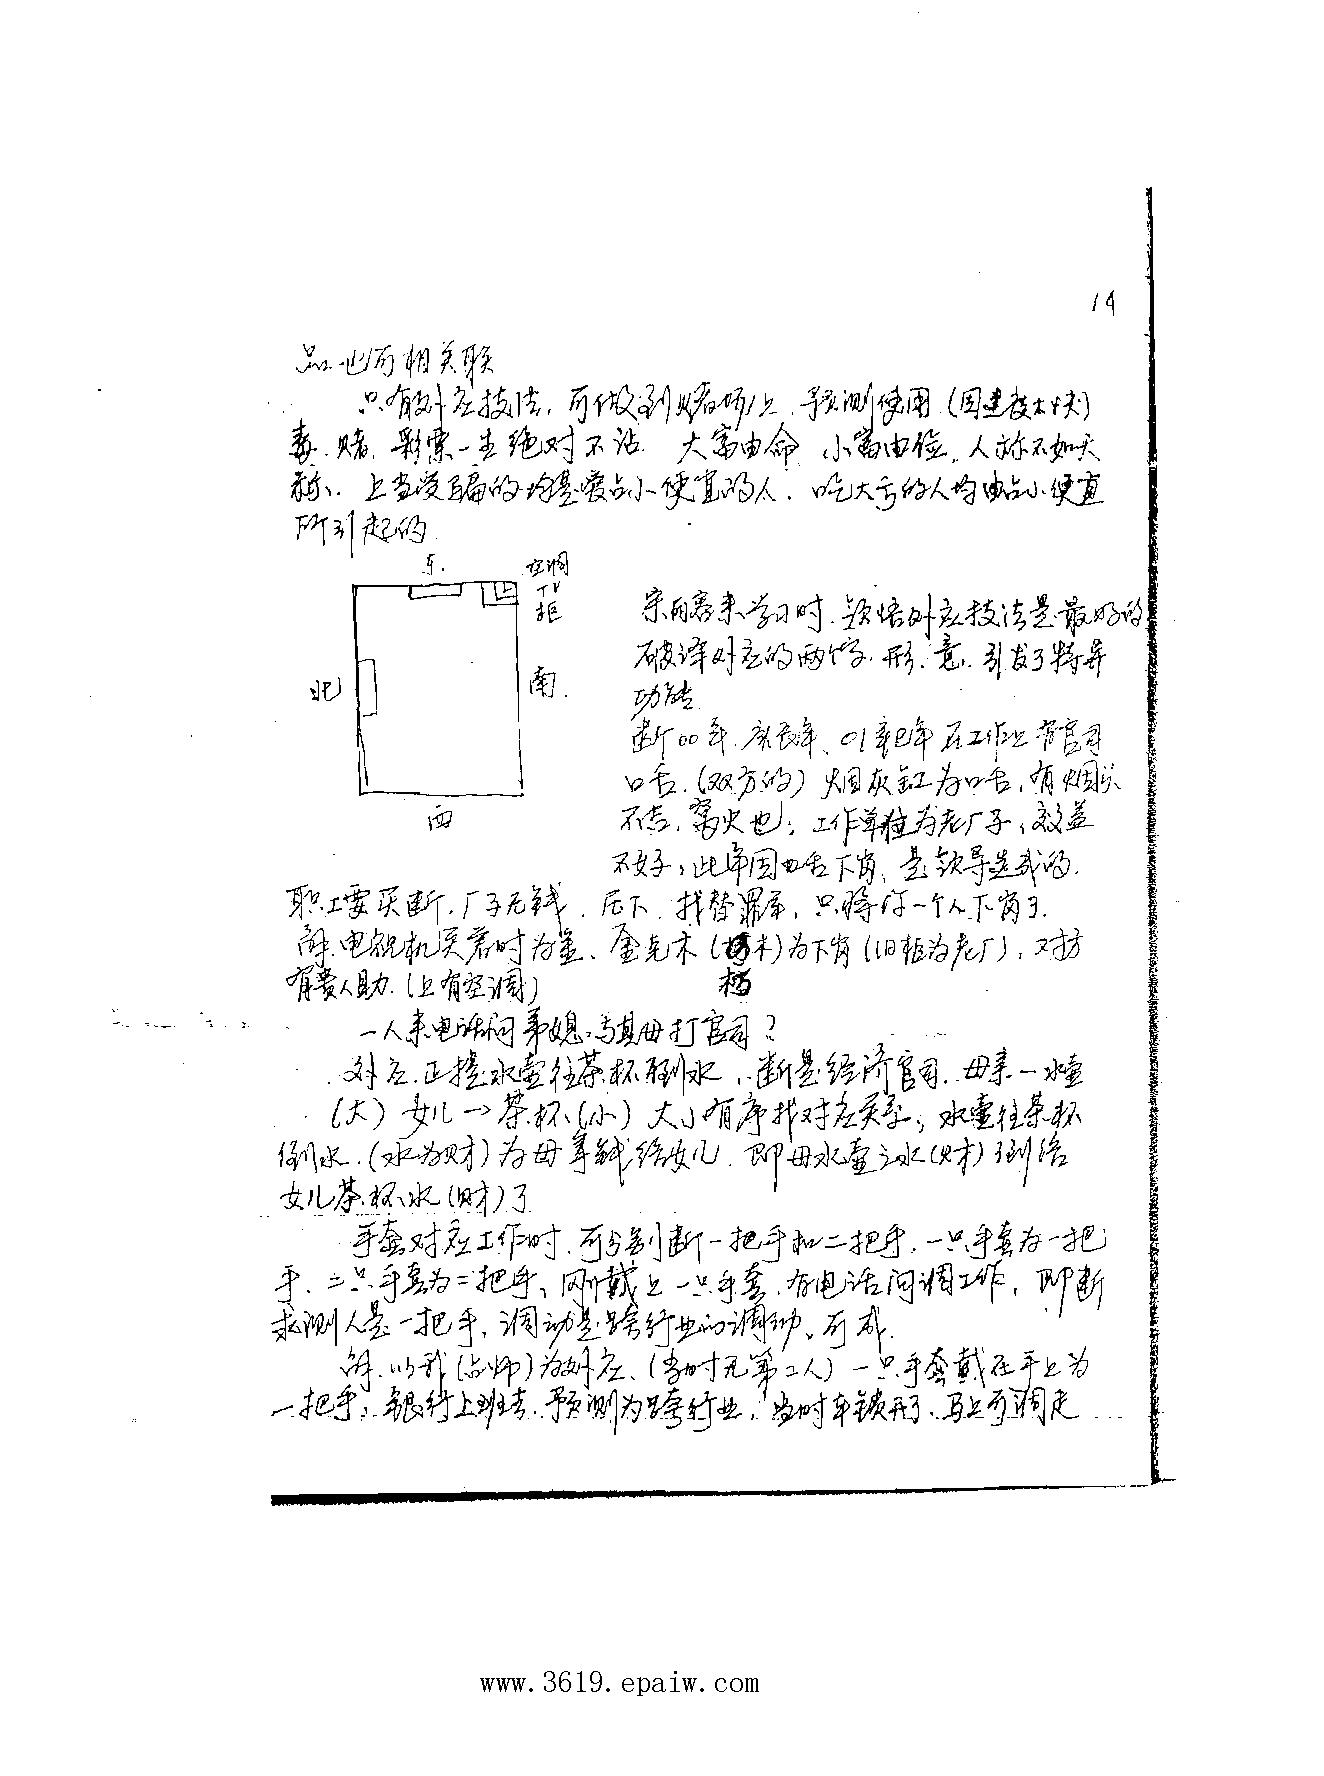 14
品也可相关联
只有对应技法，可做到赌场上，予测使用（因速技术快）
毒、赌、彩票一生绝对不沾 大富由命 小富由俭，人称不如天
称、上当受骗的均是爱占小便宜的人．吃大亏的人均由占小便宜
所引起的
东． 空调
TV
柜
北 南．
西
宗雨客来学习时．领悟对应技法是最好的
破译对应的两个字．形．意．引发了特异
功能
断00年．庚辰年、01辛巳年在工作上有官司
口舌．（双方的）烟灰缸为口舌，有烟头
不吉．窝火也；工作单位为老厂子，效益
不好；此年因口舌下岗、是领导造成的．
职工要买断．厂子无钱．后下．找替罪羊，只将你一个人下岗了．
解．电视机买者时为金、金克木（柜木）为下岗（旧柜为老厂），对方
柜
有贵人助．（上有空调）
一人来电话问弟媳与其母打官司？
对应．正提水壶往茶杯倒水，断是经济官司．母亲一水壶
（大）女儿→茶杯（小）大小有序找对应关系；水壶往茶杯
倒水．（水为财）为母拿钱给女儿．即母水壶之水（财）到给
女儿茶杯水（财）了
手套对应工作时．可分别断一把手和二把手．一只手套为一把
手．二只手套为二把手、刚戴上一只手套．有电话问调工作，即断
求测人是一把手，调动是跨行业的调动、可成．
解．以我（占师）为对应、（当时无第二人）一只手套戴在手上为
一把手；银行上班去．予测为跨行业，当时车锁开了．马上可调走
www.3619.epaiw.com